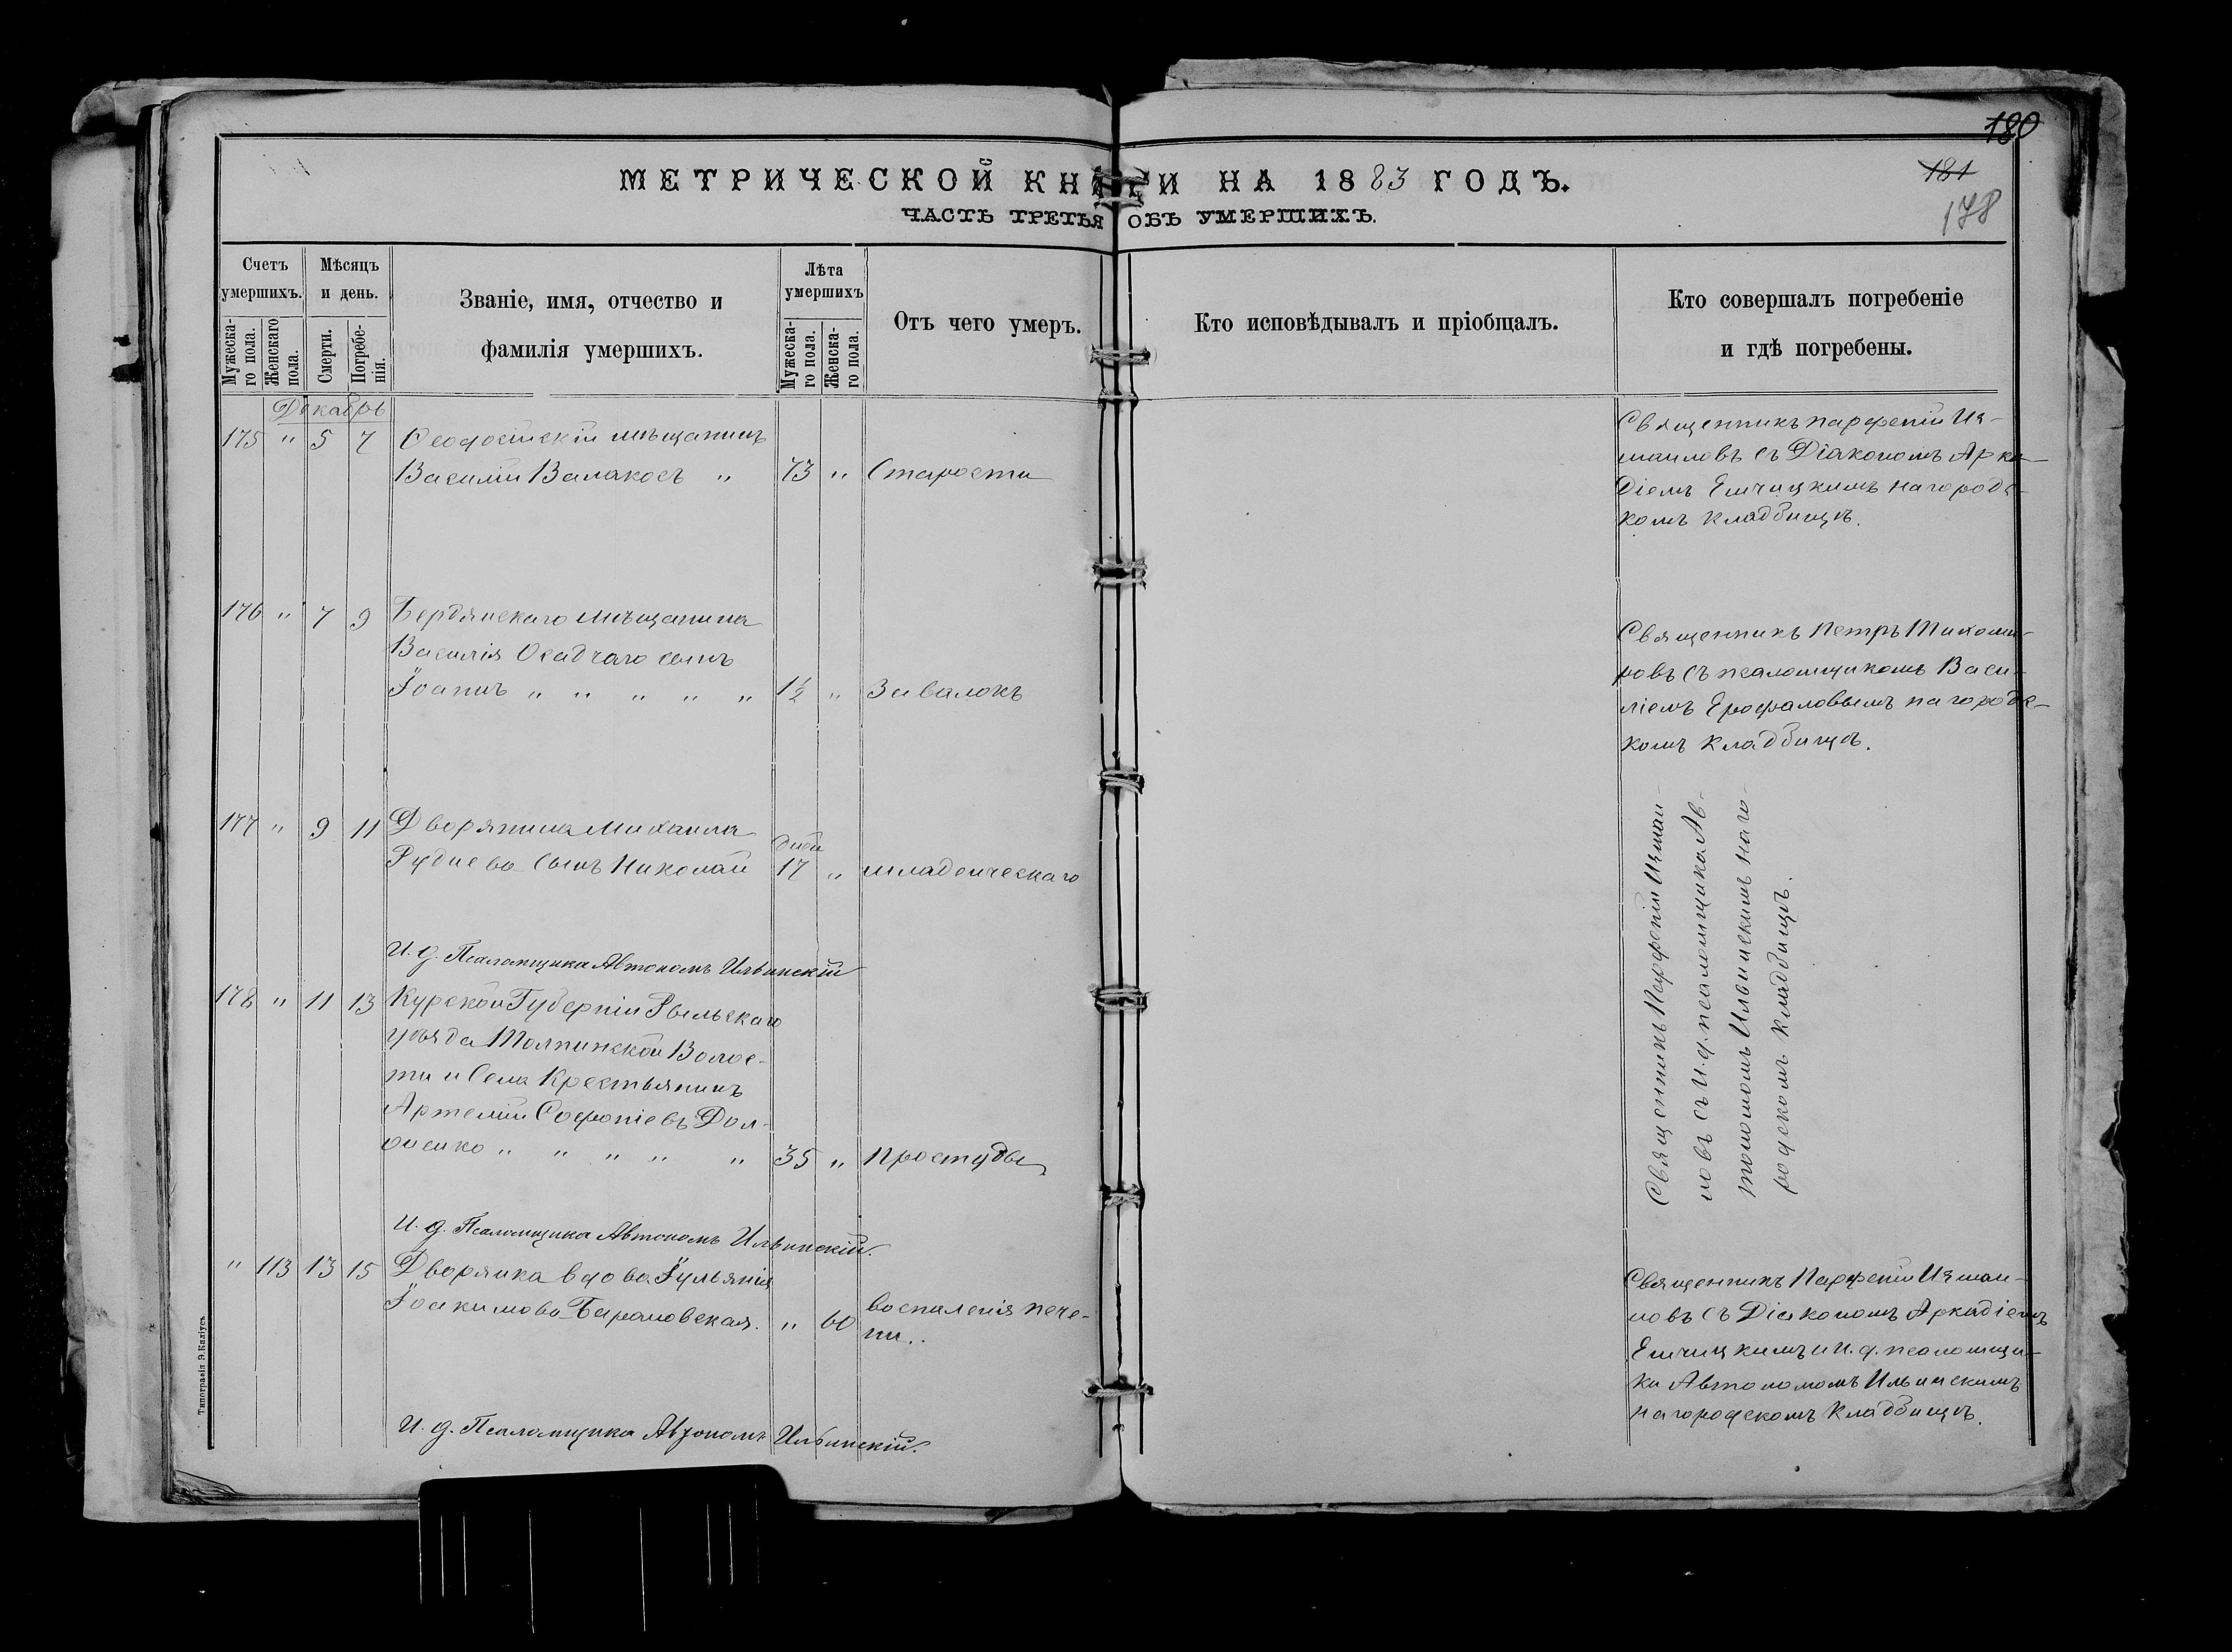 180
181
178
МЕТРИЧЕСКОЙ КНИГИ НА 1883 ГОДЪ.
ЧАСТЬ ТРЕТЬЯ ОБЪ УМЕРШИХЪ.
Счетъ умершихъ.
Мужеска-го пола.
Женскаго пола.
Мѣсяцъ и день.
Смерти.
Погребе-нія.
Званіе, имя, отчество и
фамилія умершихъ.
Лѣта умершихъ
Мужеска-го пола.
Женска-го пола.
Отъ чего умеръ.
Кто исповѣдывалъ и пріобщалъ.
Кто совершалъ погребеніе
и гдѣ погребены.
Декабрь
175 " 5 7 Ѳеодосійскій мѣщанинъ
Василій Валакосъ " 73 " Старости
Священникъ Парфеній Из-
маиловъ съ Діакономъ Арка-
діемъ Емчицкимъ на городс-
комъ кладбищѣ.
176 " 7 9 Бердянскаго мѣщанина
Василія Осадчаго сынъ
Іоаннъ " " " " " 1½ " Зивалокъ
Священникъ Петръ Тихоми-
ровъ съ псаломщикомъ Васи-
ліемъ Ерофаловымъ на городс-
комъ кладбищѣ.
177 " 9 11 Дворянина Михаила
Руднева сынъ Николай дней 17 " младенческаго
И. д. Псаломщика Автономъ Ильинскій
178 " 11 13 Курской Губерніи Рыльскаго
уѣзда Толпинской Волос-
ти и Села Крестьянинъ
Артемій Софоніевъ Дол-
женко " " " " " 35 " Простуды
Священникъ Парфеній Измаи-
ловъ съ И. д. псаломщика Ав-
тономомъ Ильинскимъ на го-
родскомъ кладбищѣ.
И. д. Псаломщика Автономъ Ильинскій.
" 113 13 15 Дворянка вдова Іульянія
Іоакимова Барановская. " 60 воспаленія пече-
ни.
Священникъ Парфеній Измаи-
ловъ съ Діакономъ Аркадіемъ
Емчицкимъ и И. д. псаломщи-
ка Автономомъ Ильинскимъ
на городскомъ кладбищѣ.
И. д. Псаломщика Автономъ Ильинскій.
Типографія Э. Киліусъ